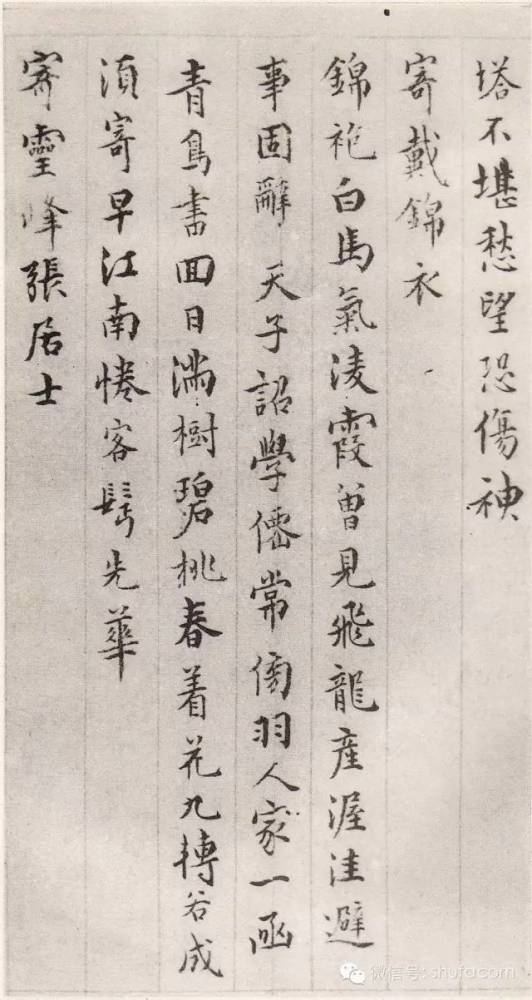 塔不堪愁望恐傷神
寄戴錦衣
錦袍白馬氣凌霞曾見飛龍產渥洼避
事固辭 天子詔學僊常傍羽人家一函
青鳥書囬日滿樹碧桃春着花九轉若成
須寄早江南惓客鬢先華
寄靈峰張居士
微信号: shufacom